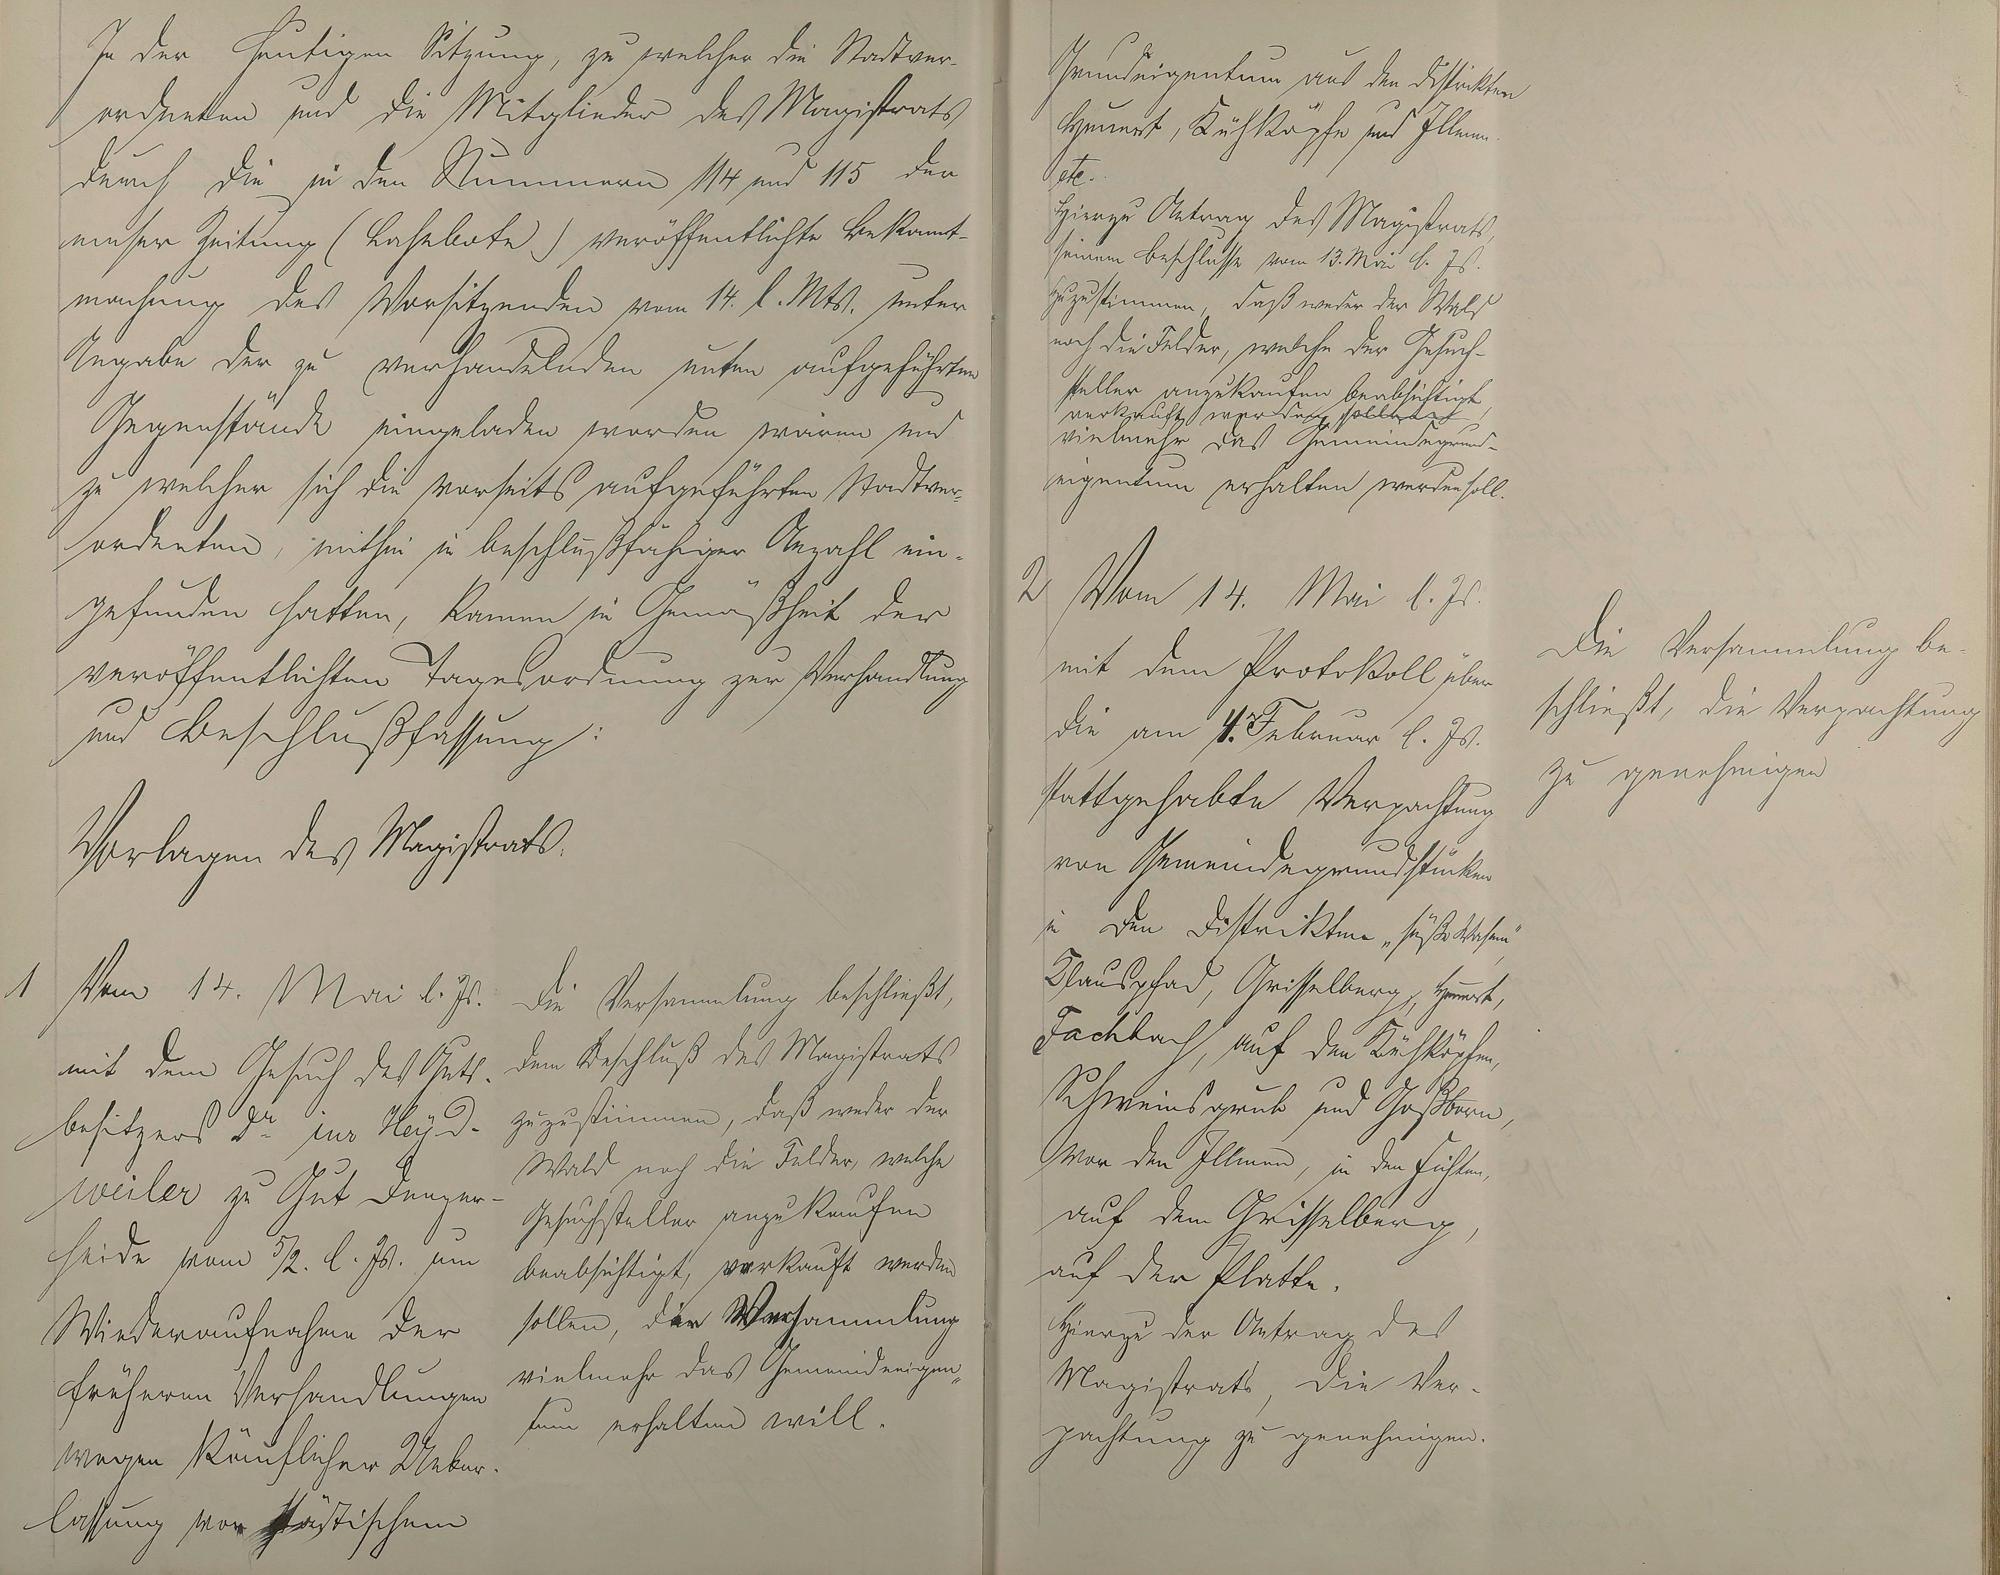 In der heutigen Sitzung, zu welcher die Stadtver-
ordneten und die Mitglieder des Magistrats
durch die in den Nummern 114 und 115 der
emser Zeitung (Lahnbote) veröffentlichte Bekannt-
machung des Vorsitzenden vom 14. l. Mts. unter
Angabe der zu verhandelnden unten aufgeführten
Gegenstände eingeladen worden waren und
zu welcher sich die vorseits aufgeführten Stadtver-
ordneten, mithin in beschlußfähiger Anzahl ein-
gefunden hatten, kamen in Gemäßheit der
veröffentlichten Tagesordnung zur Verhandlung
und Beschlußfassung:
Vorlagen des Magistrats.
1 Vom 14. Mai l. Js.
mit dem Gesuch des Guts-
besitzers Dr. jur Heyd-
weiler zu Gut Denzer-
heide vom 5/2. l. Js. um
Wiederaufnahme der
früheren Verhandlungen
wegen käuflicher Ueber-
lassung von städtischem
Die Versammlung beschließt,
dem Beschluß des Magistrats
zuzustimmen, daß weder der
Wald noch die Felder, welche
Gesuchsteller anzukaufen
beabsichtigt, verkauft werden
sollen, die Versammlung
vielmehr das Gemeindeeigen-
tum erhalten will.
Grundeigentum aus den Distrikten
Hümert, Kühköpfe und Illmen
etc.
Hierzu Antrag des Magistrats,
seinem Beschlusse vom 13. Mai l. Js.
zuzustimmen, daß weder der Wald
noch die Felder, welche der Gesuch-
steller anzukaufen beabsichtigt,
verkauft werden sollen
vielmehr das Gemeindegrund-
eigentum erhalten werden soll.
2 Vom 14. Mai l. Js.
mit dem Protokoll über
die am 4. Februar l. Js.
stattgehabte Verpachtung
von Gemeindegrundstücken
in den Distrikten „süße Wasem"
Klauspfad, Grisselberg, Hümert,
Fachbach, auf den Kühköpfen,
Schweinsgrub und Goßborn,
Vor den Illmen, in den Fichten,
auf dem Grisselberg,
auf der Platte.
Hierzu der Antrag des
Magistrats, die Ver-
pachtung zu genehmigen.
Die Versammlung be-
schließt, die Verpachtung
zu genehmigen